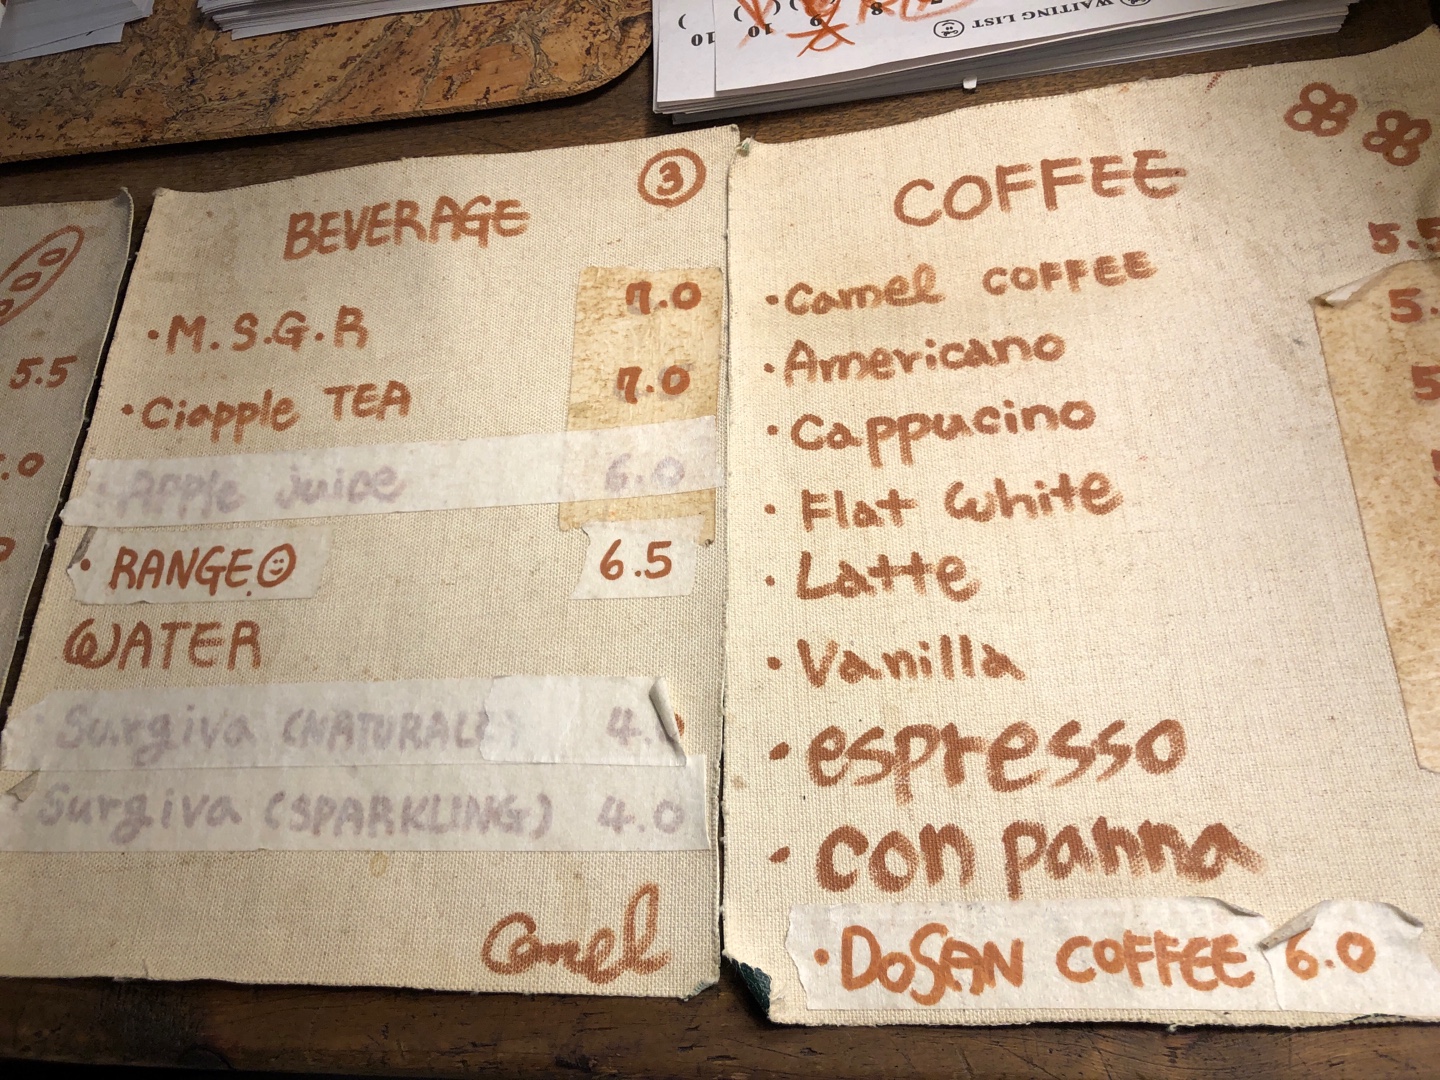 WAITING LIST
7
8
9
10
10
5.5
.0
BEVERAGE
3
· M.S.G.R 7.0
· Ciapple TEA 7.0
· Apple juice 6.0
· RANGE.O 6.5
WATER
· Surgiva (NATURALE) 4.0
Surgiva (SPARKLING) 4.0
Camel
COFFEE
· Camel COFFEE 5.5
· Americano 5.
· Cappucino 5
· Flat white
· Latte
· Vanilla
· espresso
· con panna
· DOSAN COFFEE 6.0